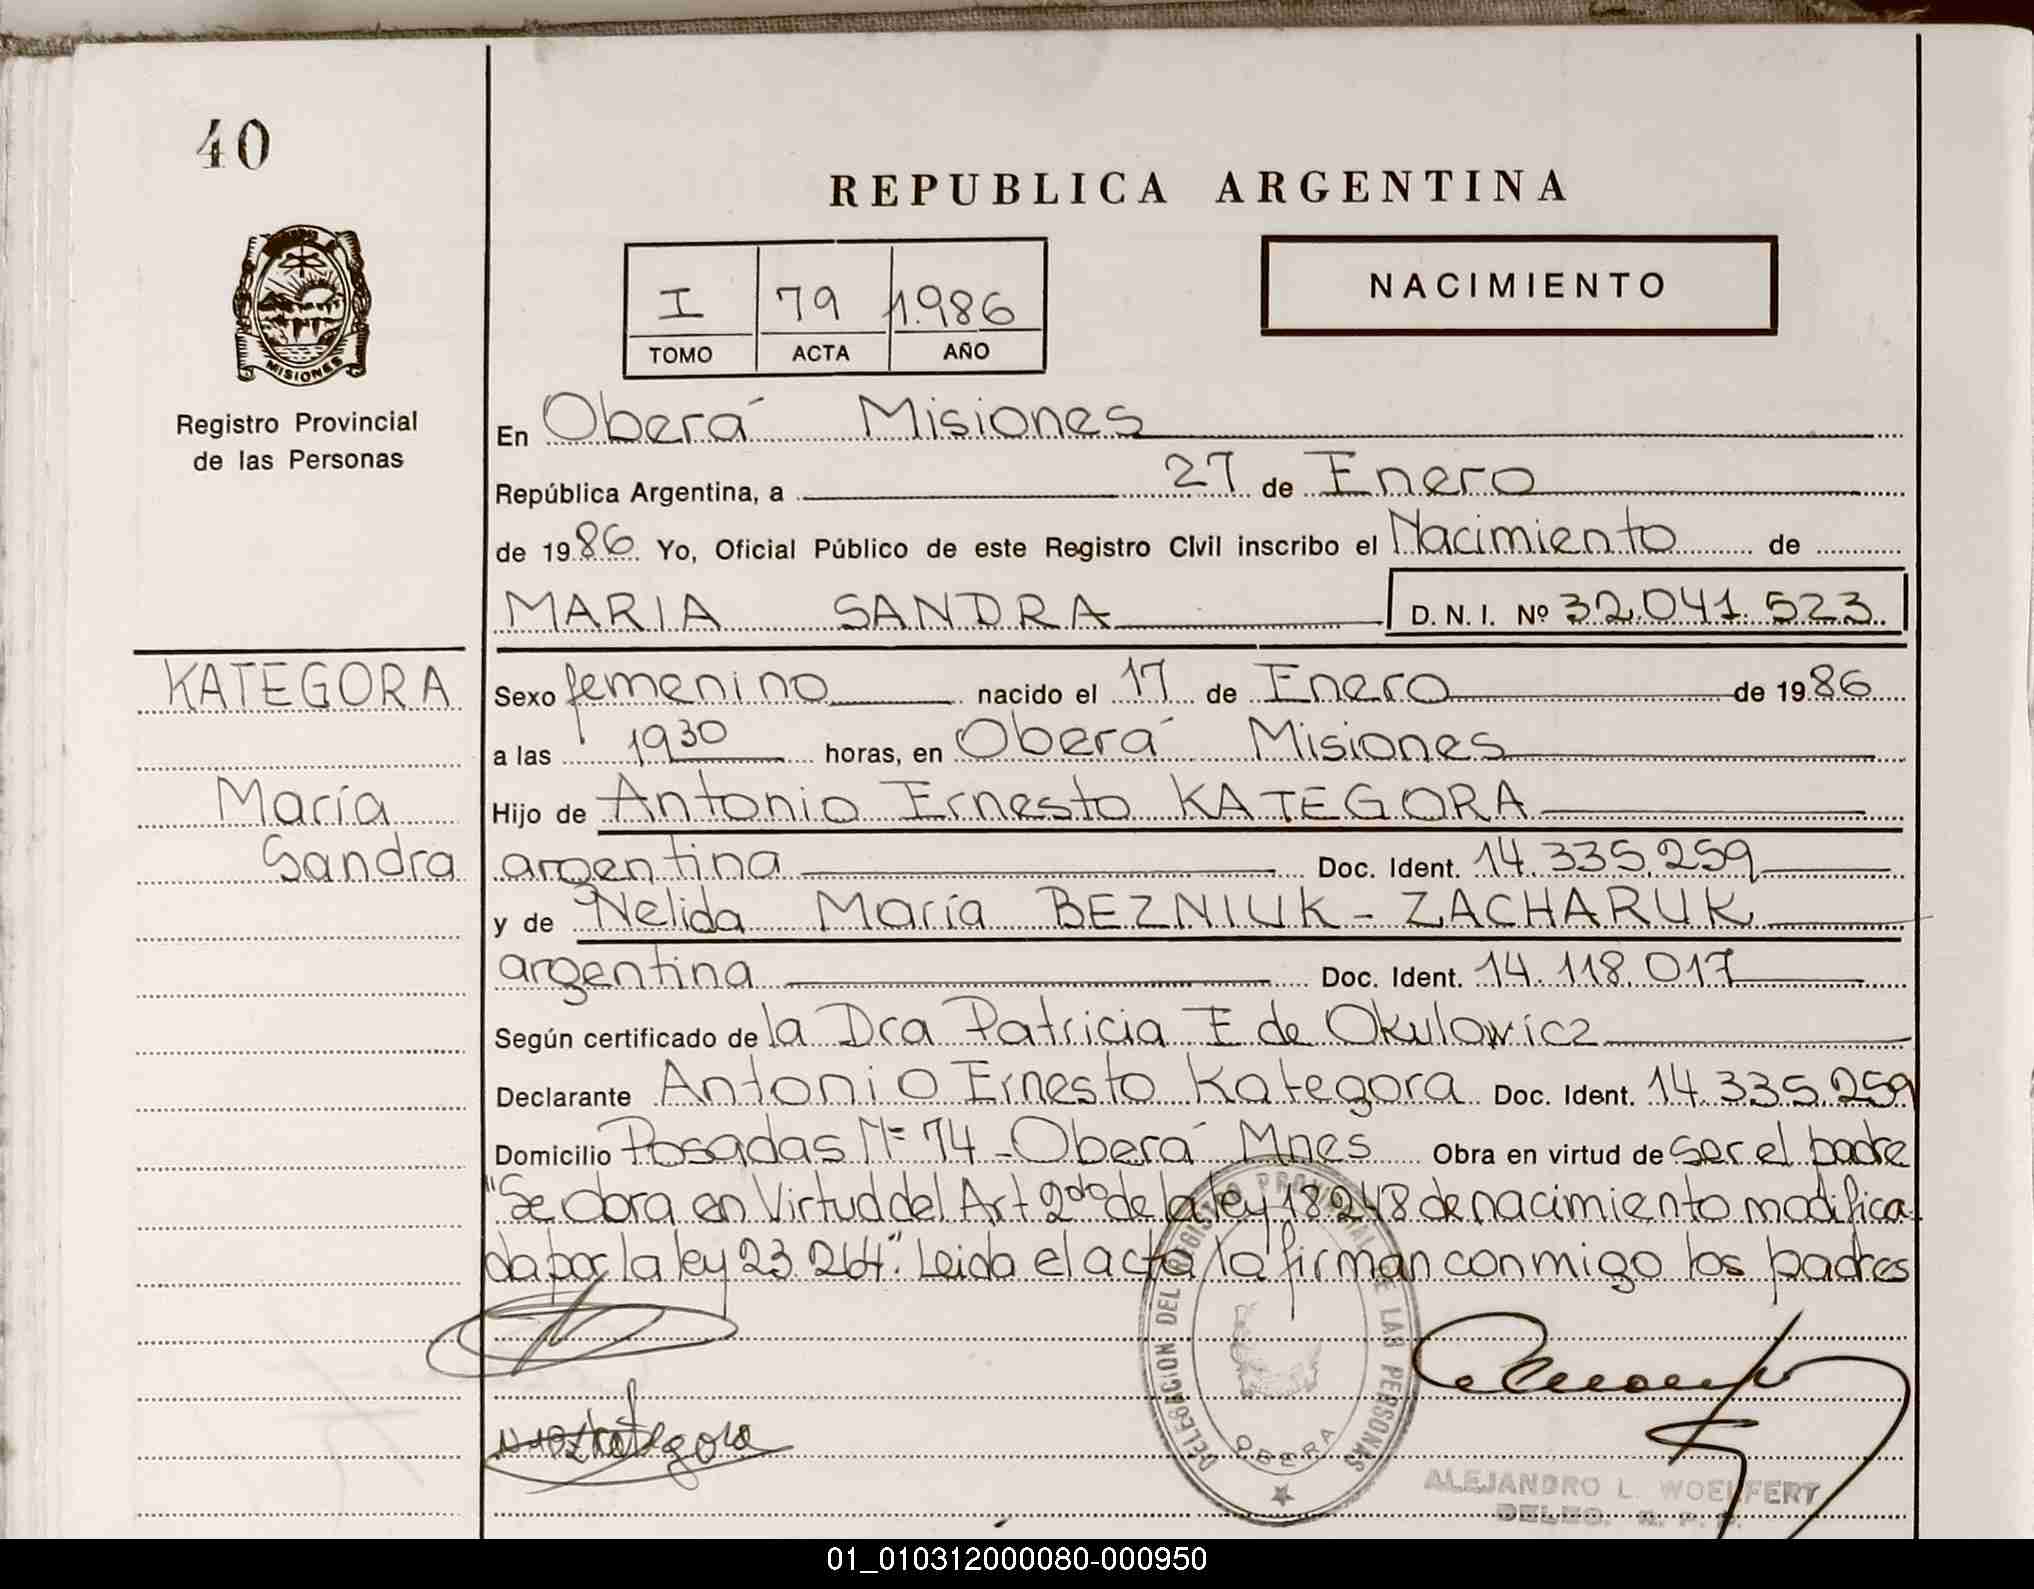 40
REPUBLICA ARGENTINA
I 79 1.986
TOMO ACTA AÑO
NACIMIENTO
MISIONES
Registro Provincial
de las Personas
En Oberá Misiones
República Argentina, a 27 de Enero
de 1986 Yo, Oficial Público de este Registro Civil inscribo el Nacimiento de
MARIA SANDRA D. N. I. Nº 32.041.523
KATEGORA
María
Sandra
Sexo femenino nacido el 17 de Enero de 1986
a las 1930 horas, en Oberá Misiones
Hijo de Antonio Ernesto KATEGORA
argentina Doc. Ident. 14.335.259
y de Nelida María BEZNIUK - ZACHARUK
argentina Doc. Ident. 14.118.017
Según certificado de la Dra Patricia E de Okulowicz
Declarante Antonio Ernesto Kategora Doc. Ident. 14.335.259
Domicilio Posadas Nº 74 - Oberá Mnes Obra en virtud de ser el padre
"Se obra en Virtud del Art 2do de la ley 18248 de nacimiento modifica
da por la ley 23.264". Leida el acta la firman conmigo los padres
DELEGACION DEL REGISTRO PROVINCIAL DE LAS PERSONAS
OBERA
Kategora
ALEJANDRO L. WOELFERT
DELEG. R. P. P.
01_010312000080-000950